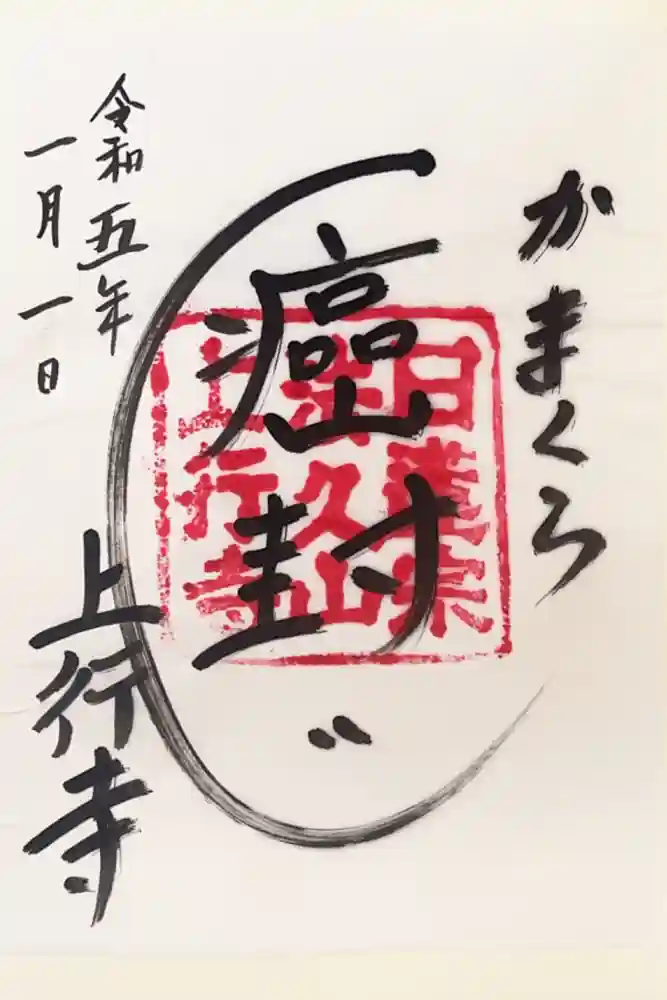 かまくら
癌封
上行寺
令和五年
一月一日
日蓮宗
法久山
上行寺